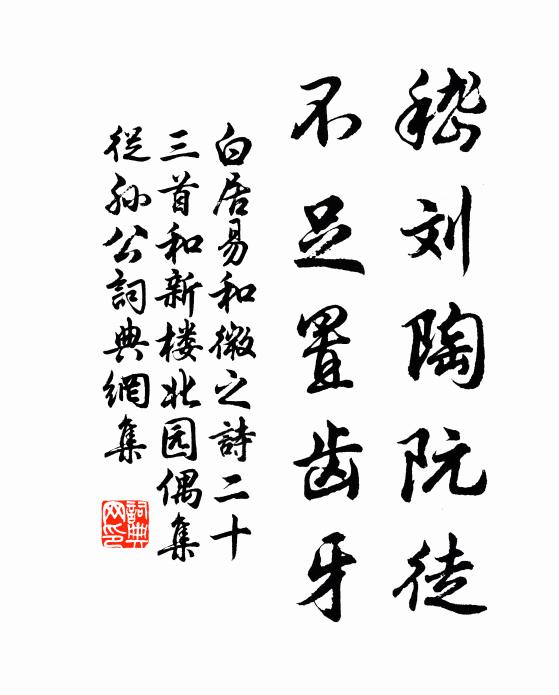 嵇刘陶阮徒
不足置齿牙
白居易和微之詩二十
三首和新楼北园偶集
従孙公詞典網集
詞典
网印